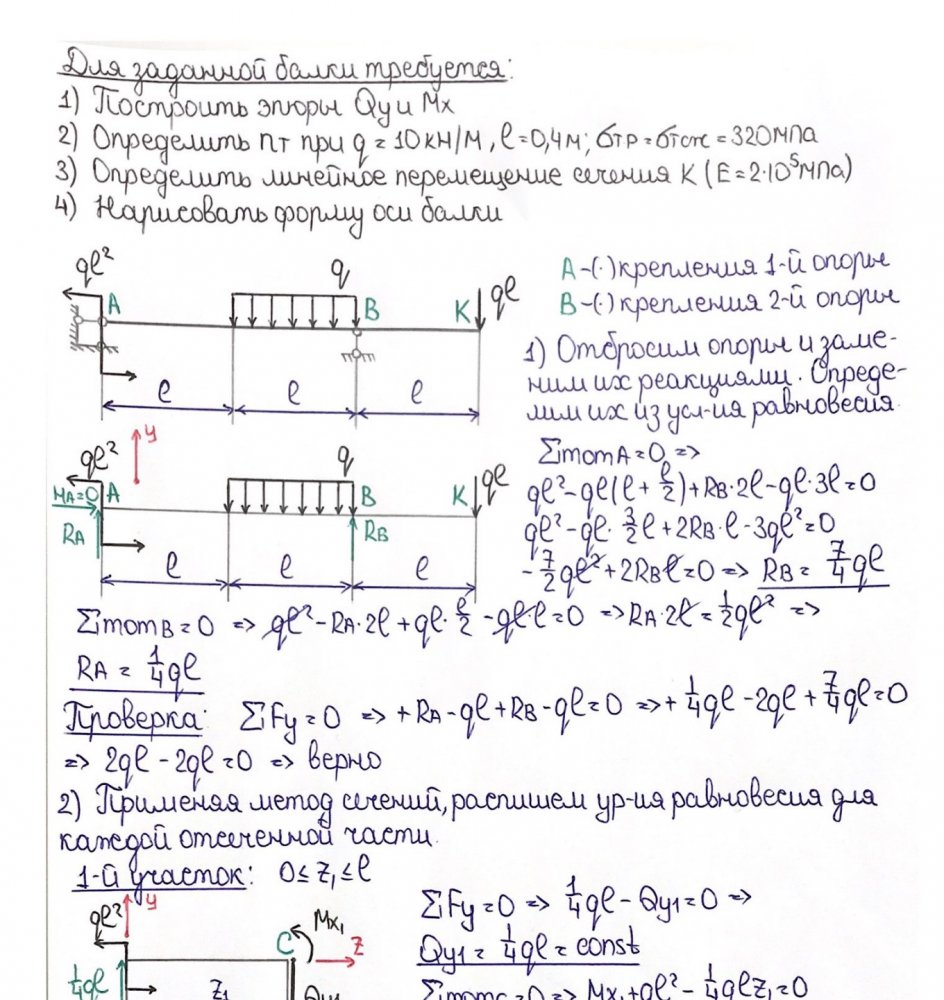 Для заданной балки требуется:
1) Построить эпюры Qy и Mx
2) Определить nт при q = 10 кН/м, l = 0,4 м; σтр = σтсж = 320 МПа
3) Определить линейное перемещение сечения K (E = 2·10⁵ МПа)
4) Нарисовать форму оси балки
ql²
q
ql
A
B
K
l
l
l
A -(·) крепления 1-й опоры
B -(·) крепления 2-й опоры
1) Отбросим опоры и заме-
ним их реакциями. Опреде-
лим их из усл-ия равновесия.
y
ql²
q
ql
MA=0
A
B
K
RA
RB
l
l
l
ΣmomA = 0 =>
ql² - ql(l + l/2) + RB·2l - ql·3l = 0
ql² - ql·3/2l + 2RB·l - 3ql² = 0
-7/2ql² + 2RBl = 0 => RB = 7/4ql
ΣmomB = 0 => ql² - RA·2l + ql·l/2 - ql·l = 0 => RA·2l = 1/2ql² =>
RA = 1/4ql
Проверка: ΣFy = 0 => + RA - ql + RB - ql = 0 => + 1/4ql - 2ql + 7/4ql = 0
=> 2ql - 2ql = 0 => верно
2) Применяя метод сечений, распишем ур-ия равновесия для
каждой отсеченной части.
1-й участок: 0 ≤ z₁ ≤ l
ql²
y
C
Mx₁
z
1/4ql
z₁
Qy1
ΣFy = 0 => 1/4ql - Qy1 = 0 =>
Qy1 = 1/4ql = const
ΣmomC = 0 => Mx₁ + ql² - 1/4qlz₁ = 0